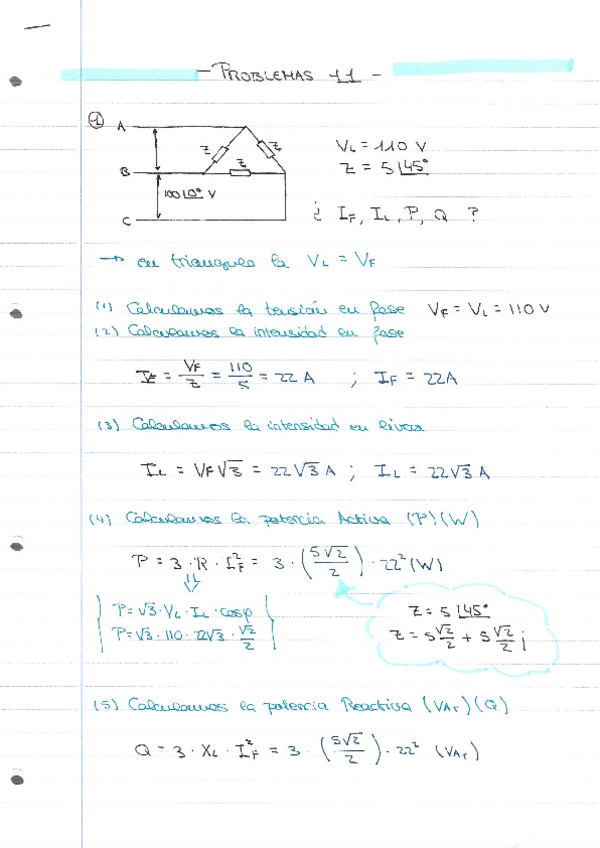 - PROBLEMAS 11 -
1
A
B
C
Z
Z
Z
100∠0° V
VL = 110 V
Z = 5∠45°
¿ IF, IL, P, Q ?
→ en triangulo la VL = VF
(1) Calculamos la tensión en fase VF = VL = 110 V
(2) Calculamos la intensidad en fase
IF = VF/Z = 110/5 = 22 A ; IF = 22A
(3) Calculamos la intensidad en linea
IL = VF√3 = 22√3 A ; IL = 22√3 A
(4) Calculamos la potencia Activa (P)(W)
P = 3 · R · IF² = 3 · (5√2/2) · 22² (W)
P = √3 · VL · IL · cosφ
P = √3 · 110 · 22√3 · √2/2
Z = 5∠45°
Z = 5√2/2 + 5√2/2 j
(5) Calculamos la potencia Reactiva (VAr)(Q)
Q = 3 · XL · IF² = 3 · (5√2/2) · 22² (VAr)